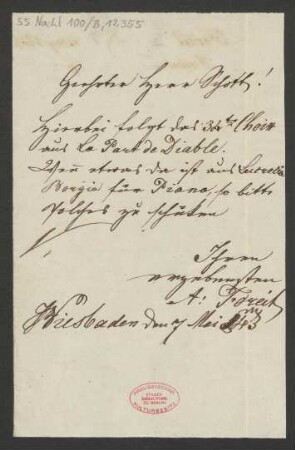 55 Nachl 100/B, 12355
Geehrter Herr Schott!
Hierbei folgt das 3te Choix
aus La Part de Diable.
Wen etwas da ist aus Lucrezia
Borgia für Piano, so bitte
solches zu schicken
Ihren
ergebensten
A:
Wiesbaden den 7 Mai
PREUSSISCHER
STAATSBIBLIOTHEK
ZU BERLIN
KULTURBESITZ